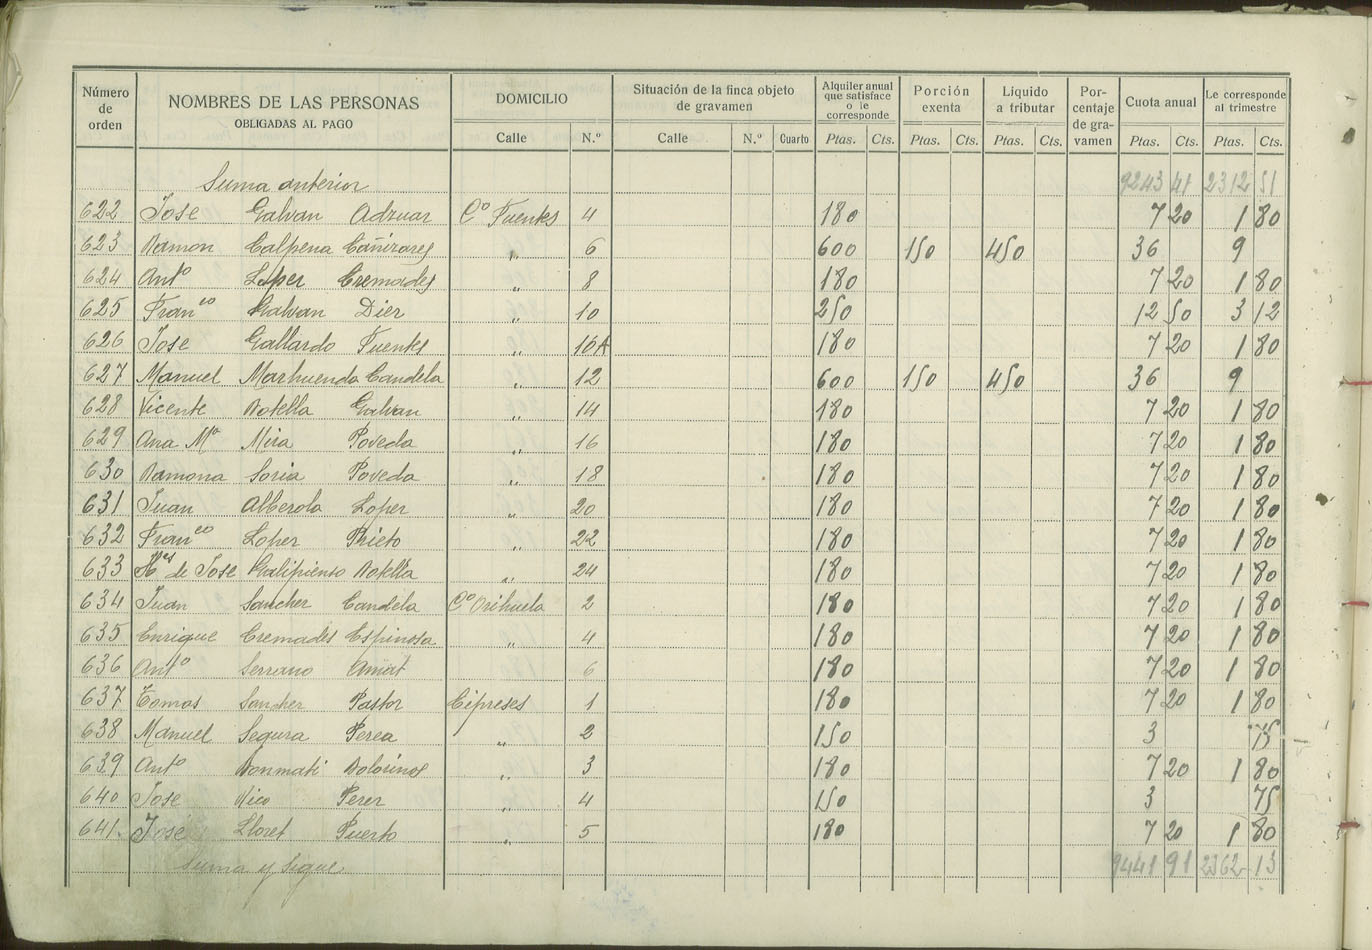 Número de orden | NOMBRES DE LAS PERSONAS OBLIGADAS AL PAGO | DOMICILIO | Situación de la finca objeto de gravamen | Alquiler anual que satisface o le corresponde | Porción exenta | Líquido a tributar | Por-centaje de gra-vamen | Cuota anual | Le corresponde al trimestre
Calle | N.º | Calle | N.º | Cuarto | Ptas. | Cts. | Ptas. | Cts. | Ptas. | Cts. | Ptas. | Cts. | Ptas. | Cts.
Suma anterior 9243 41 2312 51
622 Jose Galvan Adzuar Cº Fuentes 4 180 7 20 1 80
623 Ramon Calpena Cañizares " 6 600 150 450 36 9
624 Antº Loper Cremades " 8 180 7 20 1 80
625 Franco Galvan Dier " 10 250 12 50 3 12
626 Jose Gallardo Fuentes " 10A 180 7 20 1 80
627 Manuel Marhuenda Candela " 12 600 150 450 36 9
628 Vicente Botella Galvan " 14 180 7 20 1 80
629 Ana Mª Mira Poveda " 16 180 7 20 1 80
630 Ramona Soria Poveda " 18 180 7 20 1 80
631 Juan Alberola Loper " 20 180 7 20 1 80
632 Franco Loper Prieto " 22 180 7 20 1 80
633 Hes de Jose Galipienso Botella " 24 180 7 20 1 80
634 Juan Sancher Candela Cº Orihuela 2 180 7 20 1 80
635 Enrique Cremades Espinosa " 4 180 7 20 1 80
636 Antº Serrano Amat 6 180 7 20 1 80
637 Tomas Sancher Pastor Cipreses 1 180 7 20 1 80
638 Manuel Segura Perea " 2 150 3 75
639 Antº Bonmati Bolorinos " 3 180 7 20 1 80
640 Jose Rico Perer " 4 150 3 75
641 Jose Lloret Puerto " 5 180 7 20 1 80
Suma y Sigue 9441 91 2362 13